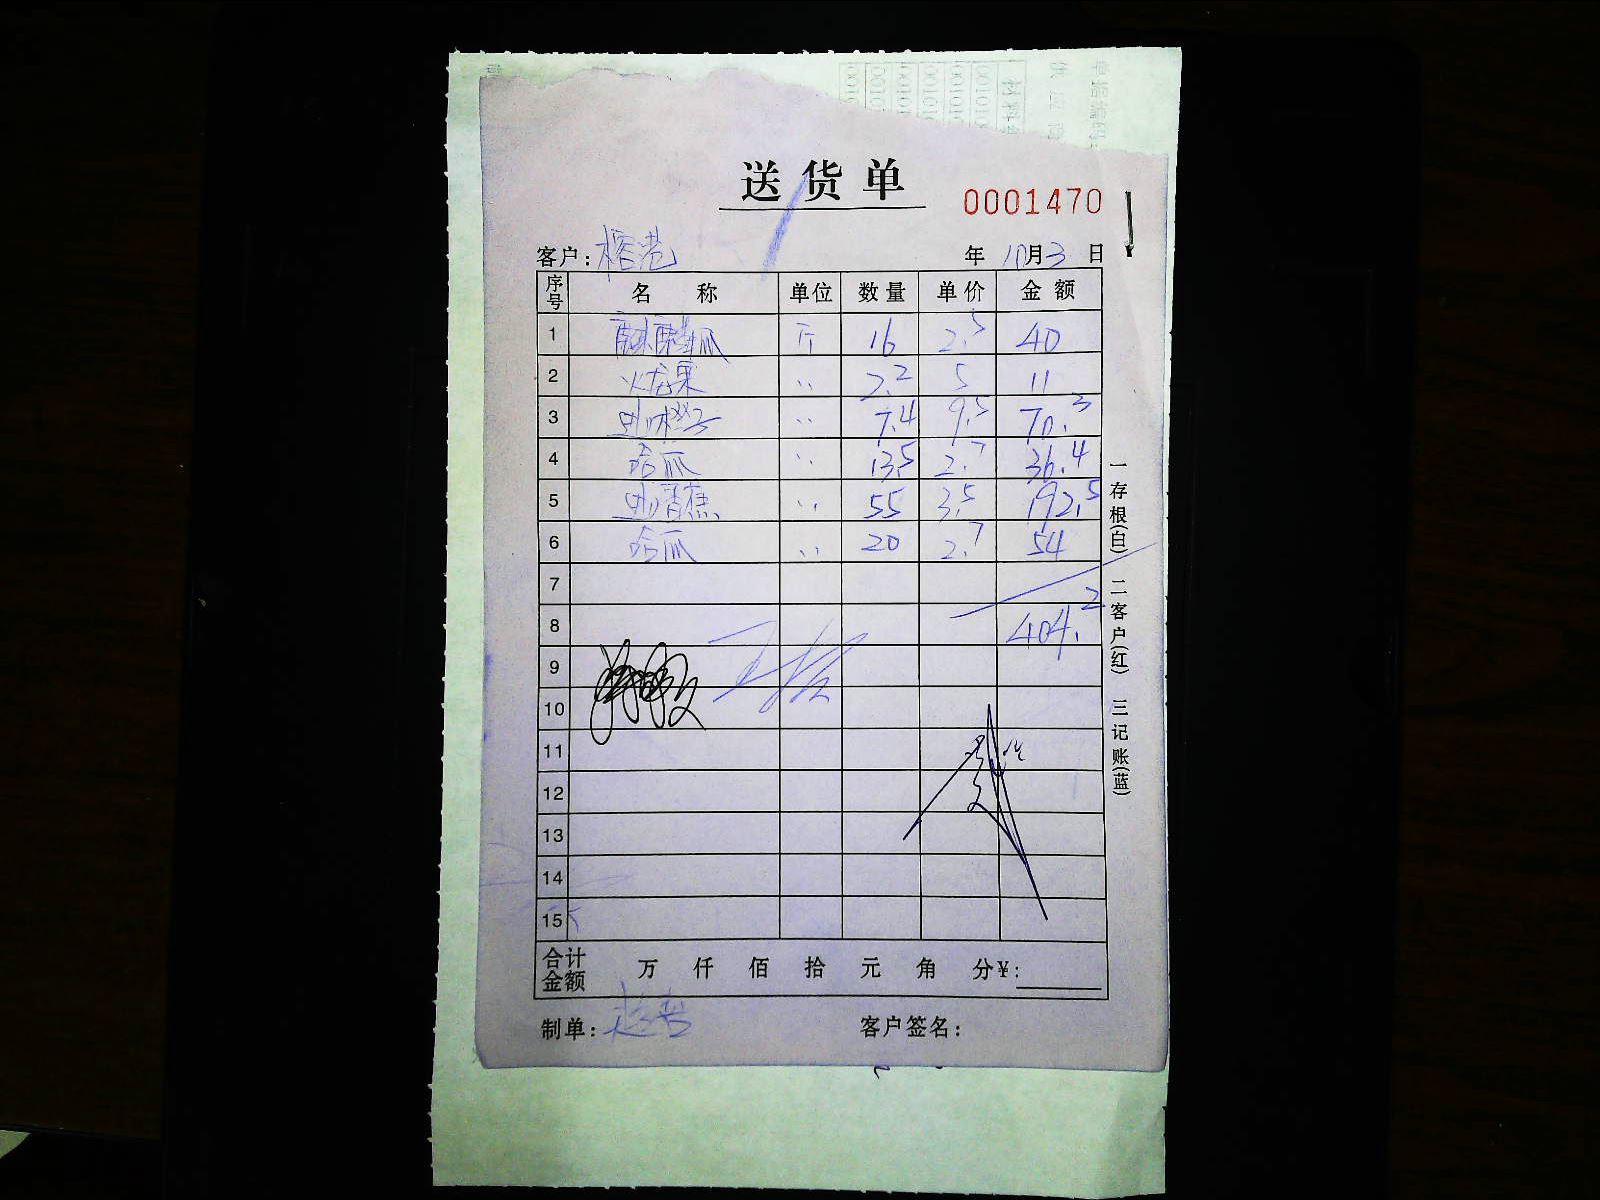 送货单
0001470
客户: 榕港 年 10月3日
序号 名称 单位 数量 单价 金额
1 麒麟瓜 斤 16 2.5 40
2 火龙果 〃 2.2 5 11
3 进口橙子 〃 7.4 9.5 70.3
4 哈瓜 〃 13.5 2.7 36.4
5 进口香蕉 〃 55 3.5 192.5
6 哈瓜 〃 20 2.7 54
7
8 404.2
9
10
11
12
13
14
15
合计金额 万 仟 佰 拾 元 角 分¥:
制单:
客户签名:
一存根(白) 二客户(红) 三记账(蓝)